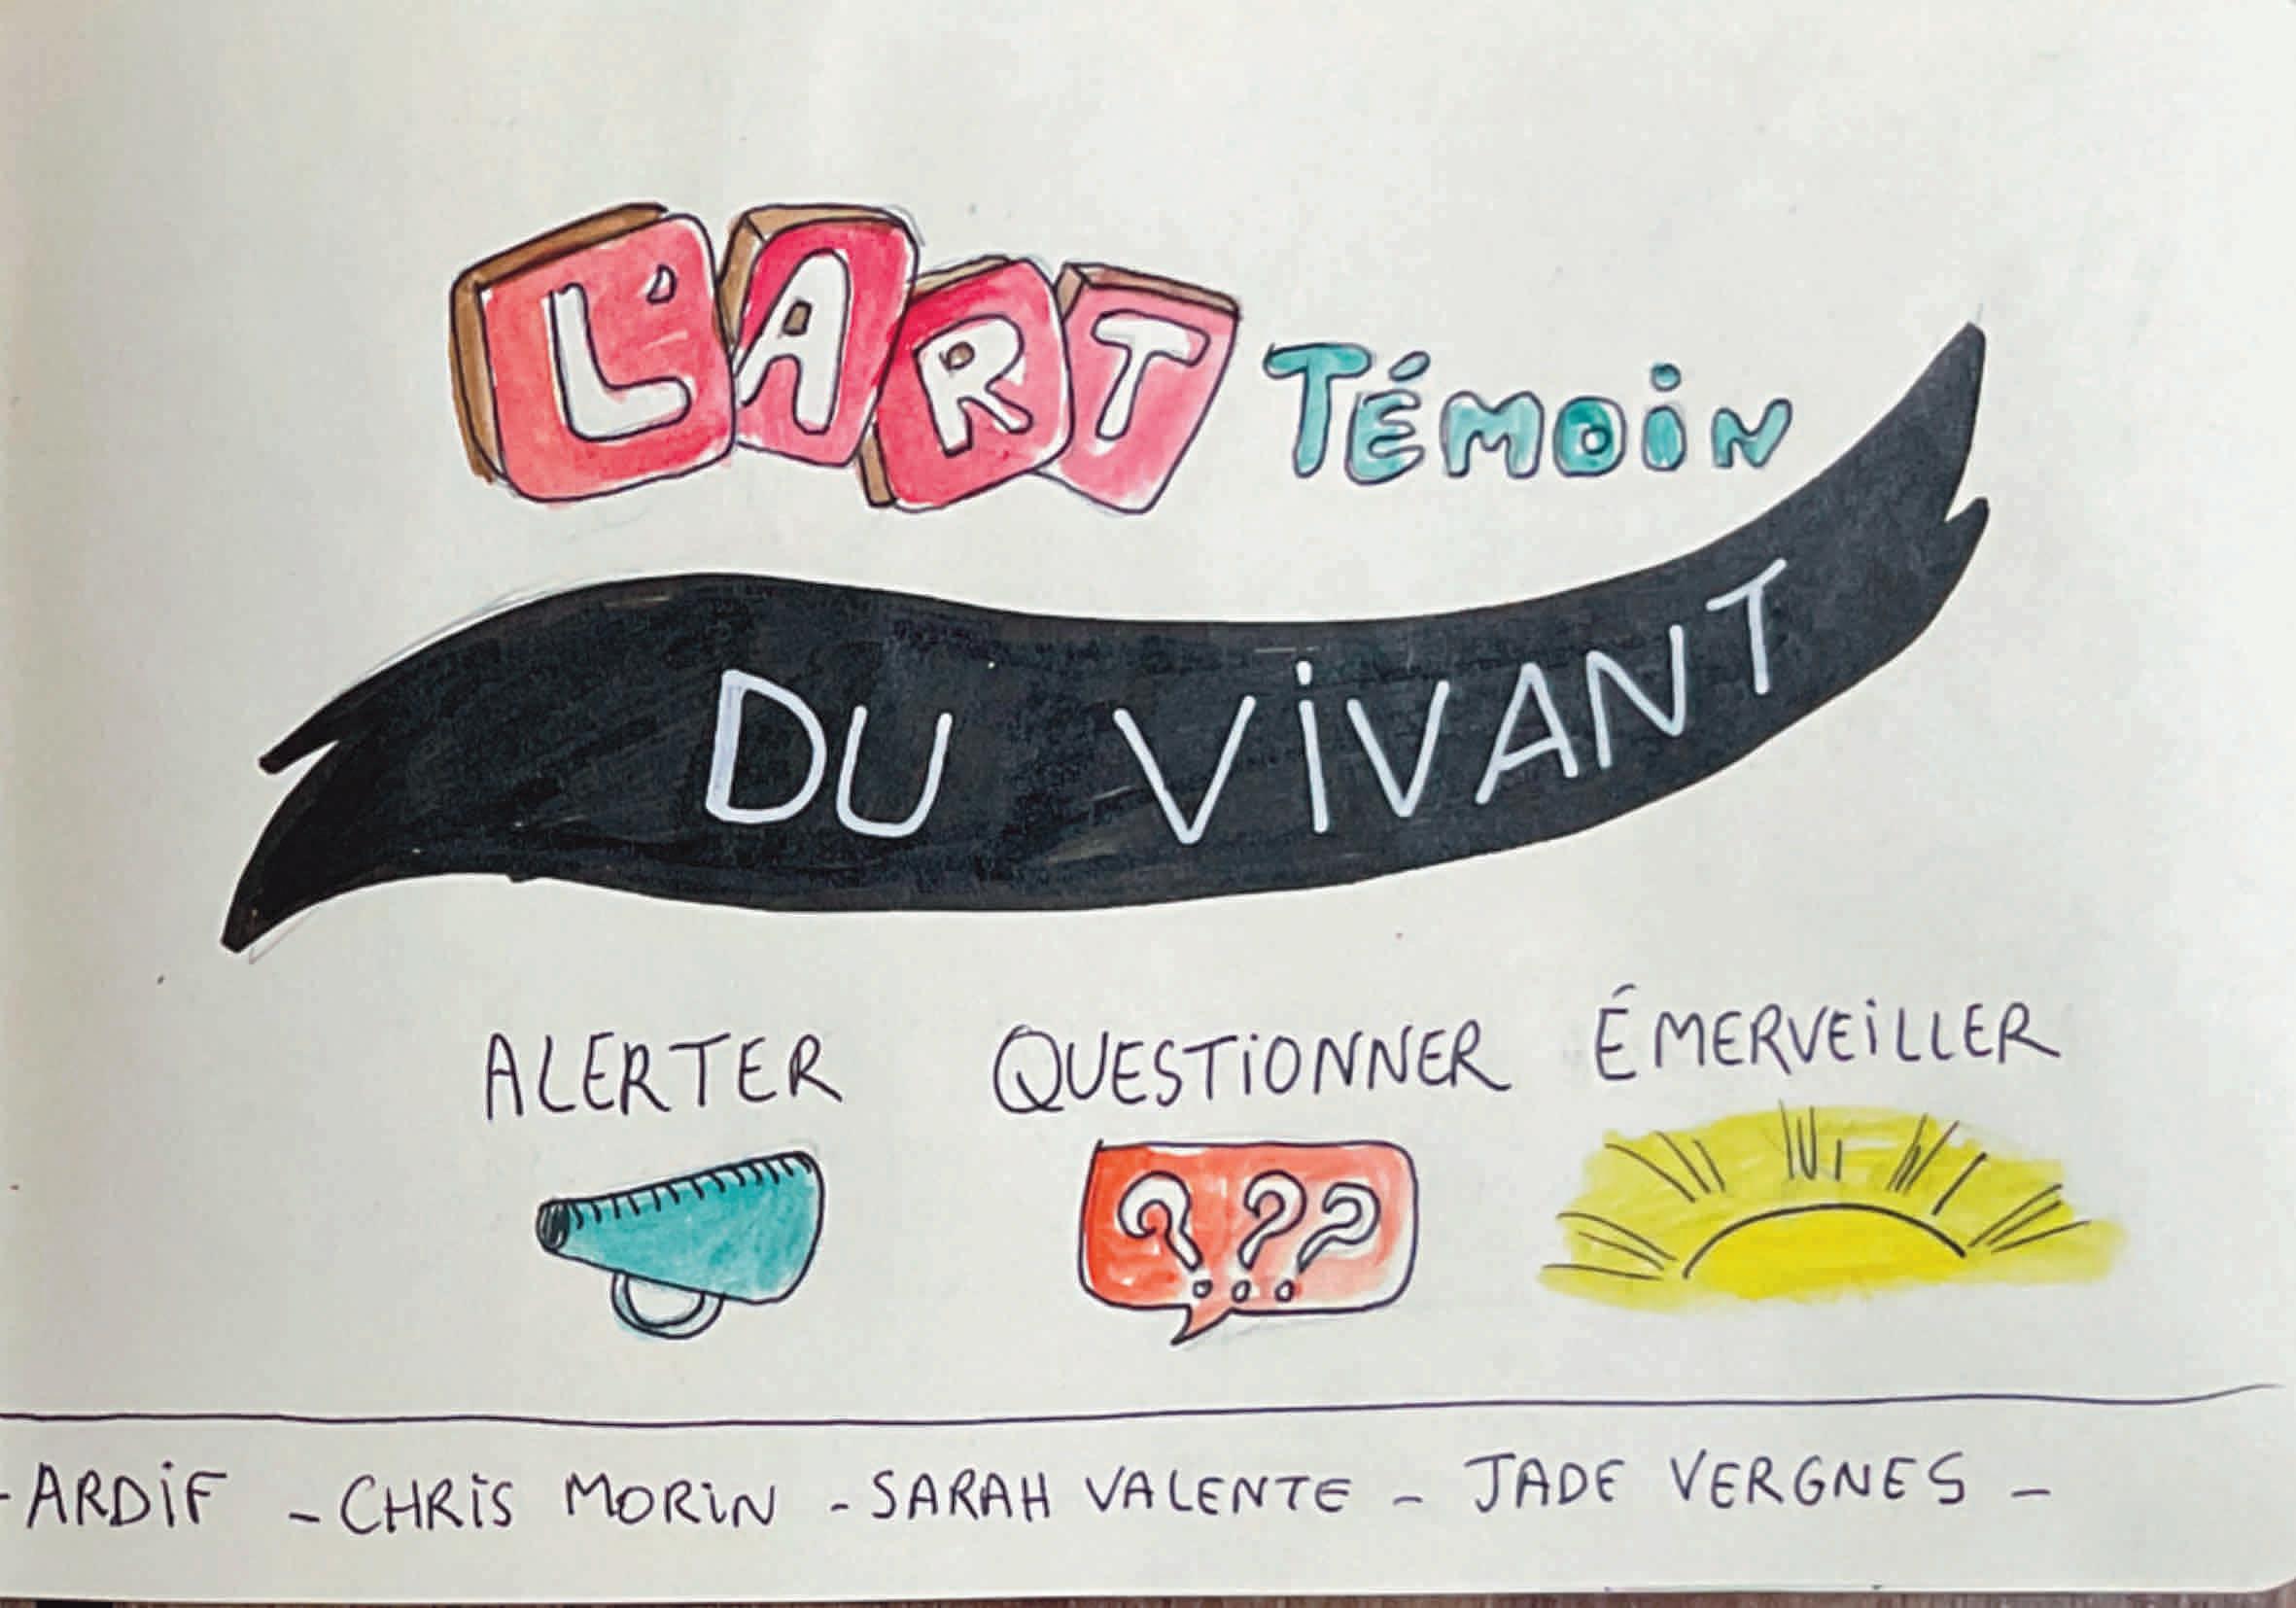 L'ART TÉMOIN
DU VIVANT
ALERTER QUESTIONNER ÉMERVEILLER
???
-ARDIF - CHRIS MORIN - SARAH VALENTE - JADE VERGNES -